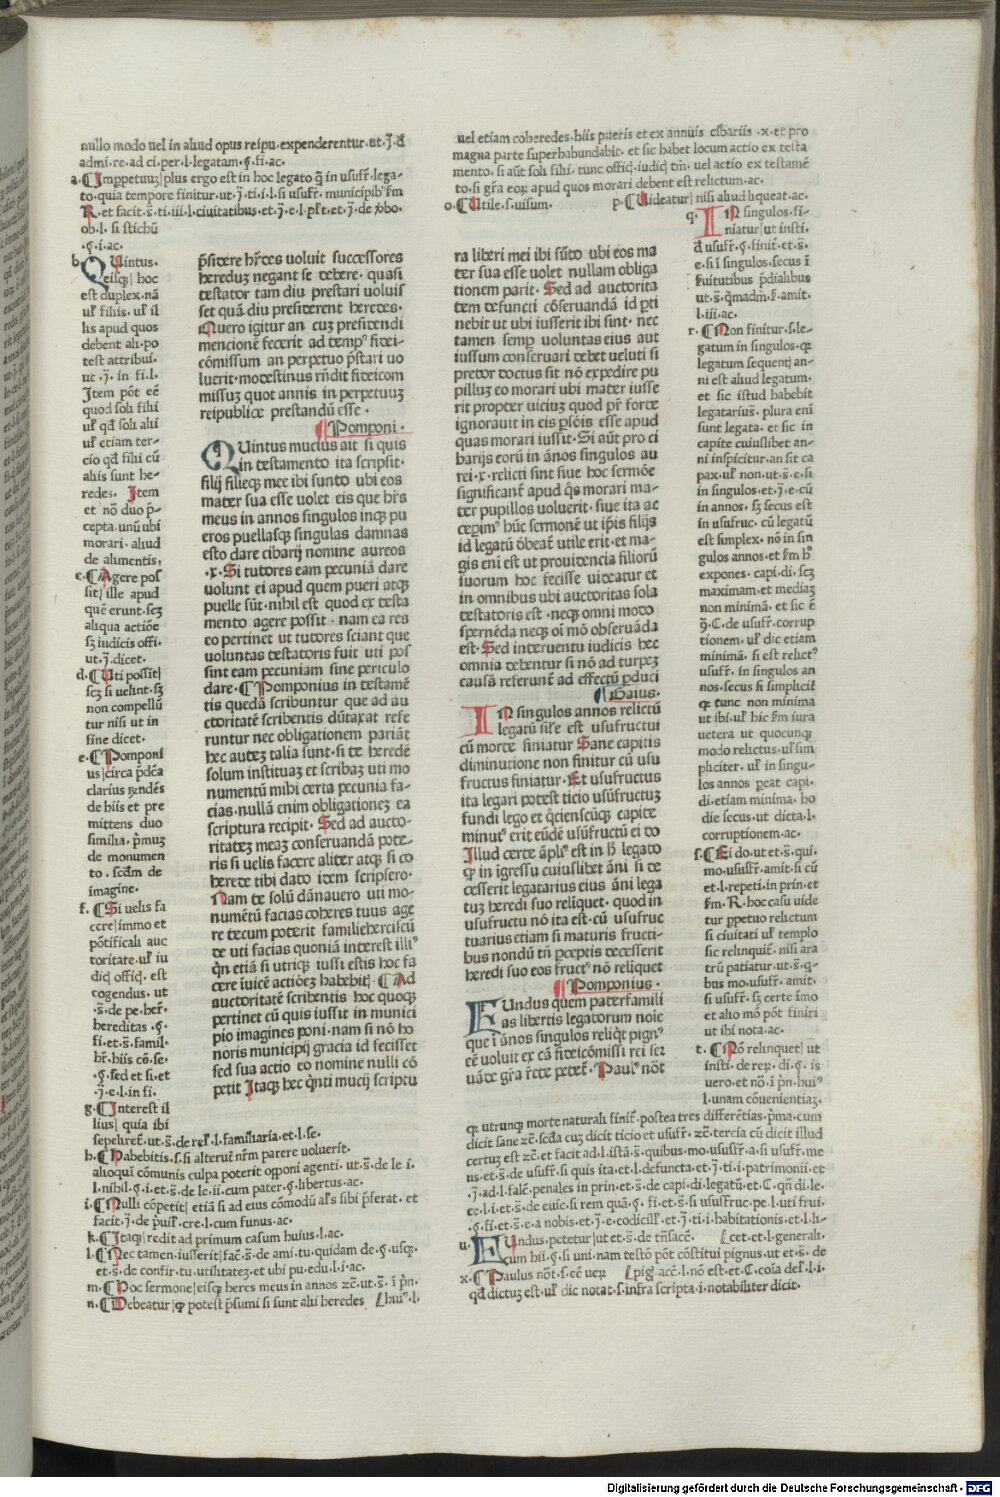 nullo modo uel in aliud opus reipu. expenderentur. ut. j. de
admi. re. ad ci. per. l. legatam. §. fi. ac.
a. Imppetuuz plus ergo est in hoc legato q̃ in usufr̃. lega-
to. quia tempore finitur. ut. j. ti. i. l. si usufr̃. municipib⁹. fm
R. et facit. s̃. ti. iii. l. ciuitatibus. et. j. e. l.
ob. l. si stichũ
.§. i. ac.
b. Quintus.
eisq; hoc
est duplex. nã
ul' filiis. ul' il
lis apud quos
debent ali. po
test attribui.
ut. j. in fi. l.
Item põt eẽ
quod soli filii
ul' qđ soli alii
ul' etiam ter-
cio qđ filii cũ
aliis sunt he-
redes. Item
et nõ duo p̃-
cepta. unũ ubi
morari. aliud
de alimentis.
c. Agere pos
sit ille apud
quẽ erunt. scz
aliqua actiõe
sz iudicis offi.
ut. j. dicet.
d. Uti possit
scz si uelint. sz
non compellũ
tur nisi ut in
fine dicet.
e. Pomponi
us circa p̃dẽa
clarius rñdẽs
de hiis et pre
mittens duo
similia. p̃muz
de monumen
to. scđm de
imagine.
f. Si uelis fa
cere immo et
põtificali auc
toritate. ul' iu
dic̃ offic̃. est
cogendus. ut
.s̃. de pe. her̃.
hereditas .§.
fi. et. s̃. famil.
hr̃. hiis cõ. se.
.§. sed et si. et
.j. e. l. in fi.
g. Interest il
lius quia ibi
sepelire. ut. s̃. de rel'. l. familiaria. et. l. se.
h. Habebitis. s. si alteru nr̃m parere uoluerit.
alioqui cõmunis culpa poterit opponi agenti. ut. s̃. de le. i.
l. nihil. §. i. et. s̃. de le. ii. cum pater. §. libertus. ac.
i. Nulli cõpetit etiã si ad eius cõmodũ al's sibi p̃ferat. et
facit. j. de p̃uil'. cre. l. cum funus. ac.
k. Itaq; redit ad primum casum huius. l. ac.
l. Nec tamen. iusserit fac̃. s̃. de ami. tu. quidam de. §. usq;.
et. s̃. de confir. tu. utilitatez. et ubi pu. edu. l. i. ac.
m. Hoc sermone eisq; heres meus in annos zc̃. ut. s̃. i p̃n.
n. Debeatur qꝫ potest p̃sumi si sunt alii heredes hui⁹. l.
p̃sidere hr̃des uoluit successores
hereduz negant se debere. quasi
testator tam diu prestari uoluis
set quã diu presiderent heredes.
Quero igitur an cuz presidendi
mencionẽ fecerit ad temp⁹ fidei-
cõmissum an perpetuo p̃stari uo
luerit. modestinus rñdit fideicom
missuz quot annis in perpetuuz
reipublice prestandũ esse.
Pomponi.
Quintus mucius ait si quis
in testamento ita scripsit.
filij filieq; mee ibi sunto ubi eos
mater sua esse uolet eis que hr̃s
meus in annos singulos inq; pu
eros puellasq; singulas damnas
esto dare cibarij nomine aureos
.x. Si tutores eam pecuniã dare
uolunt ei apud quem pueri atq;
puelle sũt. nihil est quod ex testa
mento agere possit. nam ea res
eo pertinet ut tutores sciant que
uoluntas testatoris fuit uti pos
sint eam pecuniam sine periculo
dare. Pomponius in testamẽ
tis quedã scribuntur que ad au
ctoritatẽ scribentis dũtaxat refe
runtur nec obligationem pariãt
hec autez talia sunt. si te heredẽ
solum instituaz et scribaz uti mo
numentũ mihi certa pecunia fa-
cias. nullã enim obligationez ea
scriptura recipit. Sed ad aucto-
ritatez meaz conseruandã pote-
ris si uelis facere aliter atq; si co
herede tibi dato idem scripsero.
Nam te solũ dãnauero uti mo-
numẽtũ facias coheres tuus age
re tecum poterit familieherciscũ
de uti facias quoniã interest illi⁹
q̃n etiã si utriq; iussi estis hoc fa
cere ĩuicẽ actiõez habebit. Ad
auctoritatẽ scribentis hoc quoq;
pertinet cũ quis iussit in munici
pio imagines poni. nam si nõ ho
noris municipij gracia id fecisset
sed sua actio eo nomine nulli cõ
petit Itaq; hec q̃nti mucij scriptu
uel etiam coheredes. hiis pueris et ex annuis cibariis .x. et pro
magna parte superhabundabit. et sic habet locum actio ex testa
mento. si aũt soli filii. tunc offic̃. iudic̃ tm̃. uel actio ex testamẽ
to. si gr̃a eorz apud quos morari debent est relictum. ac.
o. Utile. s. uisum. p. Uideatur nisi aliud liqueat. ac.
ra liberi mei ibi sũto ubi eos ma
ter sua esse uolet nullam obliga
tionem parit. Sed ad auctorita
tem defuncti cõseruandã id p̃ti
nebit ut ubi iusserit ibi sint. nec
tamen semp̃ uoluntas eius aut
iussum conseruari debet ueluti si
pretor doctus sit nõ expedire pu
pilluz eo morari ubi mater iusse
rit propter uiciuz quod p̃r forte
ignorauit in eis p̃sõis esse apud
quas morari iussit. Si aũt pro ci
barijs eorũ in ãnos singulos au
rei .x. relicti sint siue hoc sermõe
significant̃ apud q̃s morari ma-
ter pupillos uoluerit. siue ita ac
cepim⁹ hũc sermonẽ ut ip̃is filijs
id legatũ õbeat̃ utile erit. et ma-
gis eni est ut prouidencia filiorũ
suorum hoc fecisse uideatur et
in omnibus ubi auctoritas sola
testatoris est. neq; omni modo
spernẽda neq; oi mõ obseruãda
est. Sed interuentu iudicis hec
omnia debentur si nõ ad turpez
causã referunt̃ ad effectũ p̃duci
Gaius.
In singulos annos relictũ
legatũ sil'e est usufructui
cũ morte finiatur Sane capitis
diminutione non finitur cũ usu
fructus finiatur. Et usufructus
ita legari potest ticio usũfructuz
fundi lego et q̃cienscũq; capite
minut⁹ erit eũdẽ usũfructũ ei do
Illud certe ãpli⁹ est in h̃ legato
qꝫ in igressu cuiuslibet ãni si de
cesserit legatarius eius ãni lega
tuz heredi suo reliquet. quod in
usufructu nõ ita est. cũ usufruc
tuarius etiam si maturis fructi-
bus nondũ tñ p̃ceptis decesserit
heredi suo eos fruct⁹ nõ relĩquet
Pomponius.
Fundus quem paterfamili
as libertis legatorum noĩe
que ĩ ãnos singulos reliq̃t pign⁹
eẽ uoluit ex cã fideicõmissi rei ser
uãde gr̃a r̃cte petet̃. Paul⁹ nõt
q. In singulos fi-
niatur ut insti.
đ usufr̃. §. finit̃. et. s̃.
e. si ĩ singulos. secus ĩ
s̃uitutibus p̃dialibus
ut. s̃. q̃madm̃. s̃. amit.
l. iii. ac.
r. Non finitur. s. le-
gatum in singulos. qꝫ
legatum sequentĩ an-
ni est aliud legatum.
et sic istud habebit
legatarius. plura enĩ
sunt legata. et sic in
capite cuiuslibet an-
ni inspicitur. an sit ca
pax. ul' non. ut. s̃. e. si
in singulos. et. j. e. cũ
in annos. sz secus est
in usufruc. cũ legatũ
est simplex. nõ in sin
gulos annos. et fm h̃
expones. capi. di. scz
maximam. et mediaz
non minimã. et sic ẽ
9̃. C. de usufr̃. corrup
tionem. ul' dic etiam
minimã. si est relict⁹
usufr̃. in singulos an
nos. secus si simplicit̃
qꝫ tunc non minima
ut ibi. ul' hic fm iura
uetera ut quocunq;
modo relictus. ul' sim
pliciter. ul' in singu-
los annos p̃eat capi.
di. etiam minima. ho
die secus. ut dicta. l.
corruptionem. ac.
s. Ei do. ut et. s̃. qui.
mo. ususfr̃. amit. si cũ
et. l. repeti. in prin. et
fm. R. hoc casu uide
tur p̃petuo relictum
si ciuitati ul' templo
sic relinquit̃. nisi ara
trũ patiatur. ut. s̃. q-
bus mo. usufr̃. amit.
si usufr̃. sz certe ĩmo
et alio mõ põt finiri
ut ibi nota. ac.
t. Nõ relinquet ut
insti. de rer. di. §. is
uero. et nõ. ĩ p̃n. hui⁹
l. unam cõuenientiaz.
qꝫ utrunq; morte naturali finit̃. postea tres differẽtias. p̃ma. cum
dicit sane zc̃. scđa cuz dicit ticio et usufr̃. zc̃. tercia cũ dicit illud
certuz est zc̃. et facit ad. l. istã. s̃. quibus. mo. ususfr̃. a. si usufr̃. me
us. et. s̃. de usufr̃. si quis ita. et l. defuncta. et. j. ti. i. patrimonii. et
.j. ad. l. falc̃. penales in prin. et. s̃. de capi. di. legatũ. et. C. qñ di. le-
ce. l. i. et. s̃. de euic. si rem quã. §. fi. et. s̃. si ususfruc. pe. l. uti frui.
.§. fi. et. s̃. e. a nobis. et. j. e. codicill'. et. j. ti. i. habitationis. et. l. li-
u. Fundus. petetur ut et. s̃. de tr̃sacẽ. cet. et. l. generali.
cum hii. §. si uni. nam testo põt cõstitui pignus. ut et. s̃. de
x. Paulus nõt. s. eẽ uerz pig. acẽ. l. nõ est. et. C. cõia del'. l. i.
qđ dictuz est. ul' dic notat. s. infra scripta. i. notabiliter dicit.
Digitalisierung gefördert durch die Deutsche Forschungsgemeinschaft - DFG